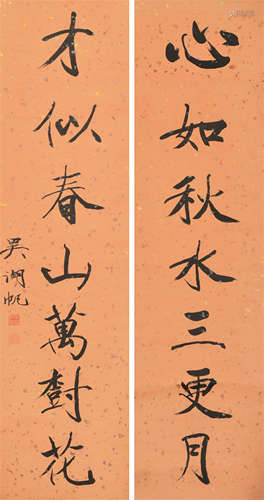 心如秋水三更月
才似春山萬樹花
吳湖帆